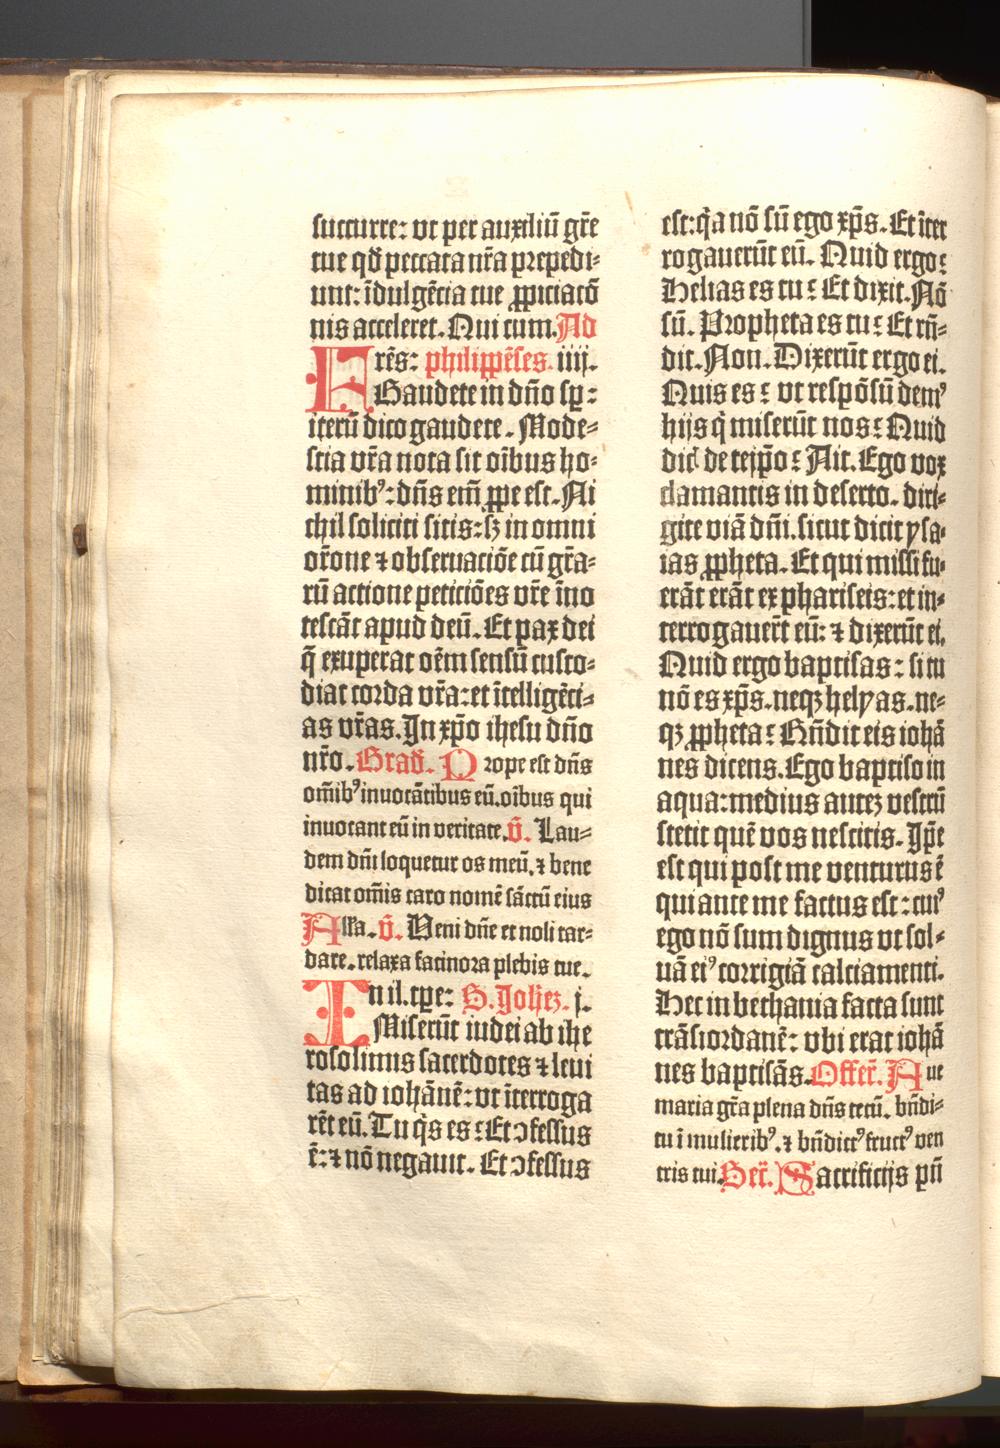 succurre: vt per auxiliū gr̄e
tue qd̄ peccata nr̄a prepedi⸗
unt: īdulgēcia tue ꝓpiciacō
nis acceleret. Qui cum. Ad
Frēs: philippēses. iiij.
Gaudete in dn̄o sꝑ:
iterū dico gaudete. Mode⸗
stia vr̄a nota sit oībus ho⸗
minibꝰ: dn̄s em̄ ꝓpe est. Ni
chil soliciti sitis: sꝫ in omni
or̄one ⁊ obseruaciōe cū gr̄a⸗
rū actione peticiōes vr̄e īno
tescāt apud deū. Et pax dei
q̄ exuperat oēm sensū custo⸗
diat corda vr̄a: et ītelligēci⸗
as vr̄as. In xp̄o ihesu dn̄o
nr̄o. Grad̄. Prope est dn̄s
om̄ibꝰ inuocātibus eū. oībus qui
inuocant eū in veritate. v̄. Lau⸗
dem dn̄i loquetur os meū. ⁊ bene
dicat om̄is caro nomē sāctū eius
Alla. v̄. Veni dn̄e et noli tar⸗
dare. relaxa facinora plebis tue.
In il. tpe: S. Joheꝫ. j.
Miserūt iudei ab ihe
rosolimis sacerdotes ⁊ leui
tas ad iohānē: vt īterroga
rēt eū. Tu q̇s es? Et ↄfessus
ē: ⁊ nō negauit. Et ↄfessus
est: q̇a nō sū ego xp̄s. Et īter
rogauerūt eū. Quid ergo?
Helias es tu? Et dixit. Nō
sū. Propheta es tu? Et rn̄⸗
dit. Non. Dixerūt ergo ei.
Quis es? vt respōsū demꝰ
hijs q̇ miserūt nos? Quid
dic̄ de teip̄o? Ait. Ego vox
clamantis in deserto. diri⸗
gite viā dn̄i. sicut dicit ysa⸗
ias ꝓpheta. Et qui missi fu⸗
erāt erāt ex phariseis: et in⸗
terrogauer̄t eū: ⁊ dixerūt ei.
Quid ergo baptisas: si tu
nō es xp̄s. neqꝫ helyas. ne⸗
qꝫ ꝓpheta? Rn̄dit eis iohā
nes dicens. Ego baptiso in
aqua: medius auteꝫ vestrū
stetit quē vos nescitis. Ip̄e
est qui post me venturus ē
qui ante me factus est: cuiꝰ
ego nō sum dignus vt sol⸗
uā eiꝰ corrigiā calciamenti.
Hec in bethania facta sunt
trāsiordanē: vbi erat iohā
nes baptisās. Offer̄. Aue
maria gr̄a plena dn̄s tecū. bn̄di⸗
tu ī mulieribꝰ. ⁊ bn̄dictꝰ fructꝰ ven
tris tui. Secr̄. Sacrificijs pn̄